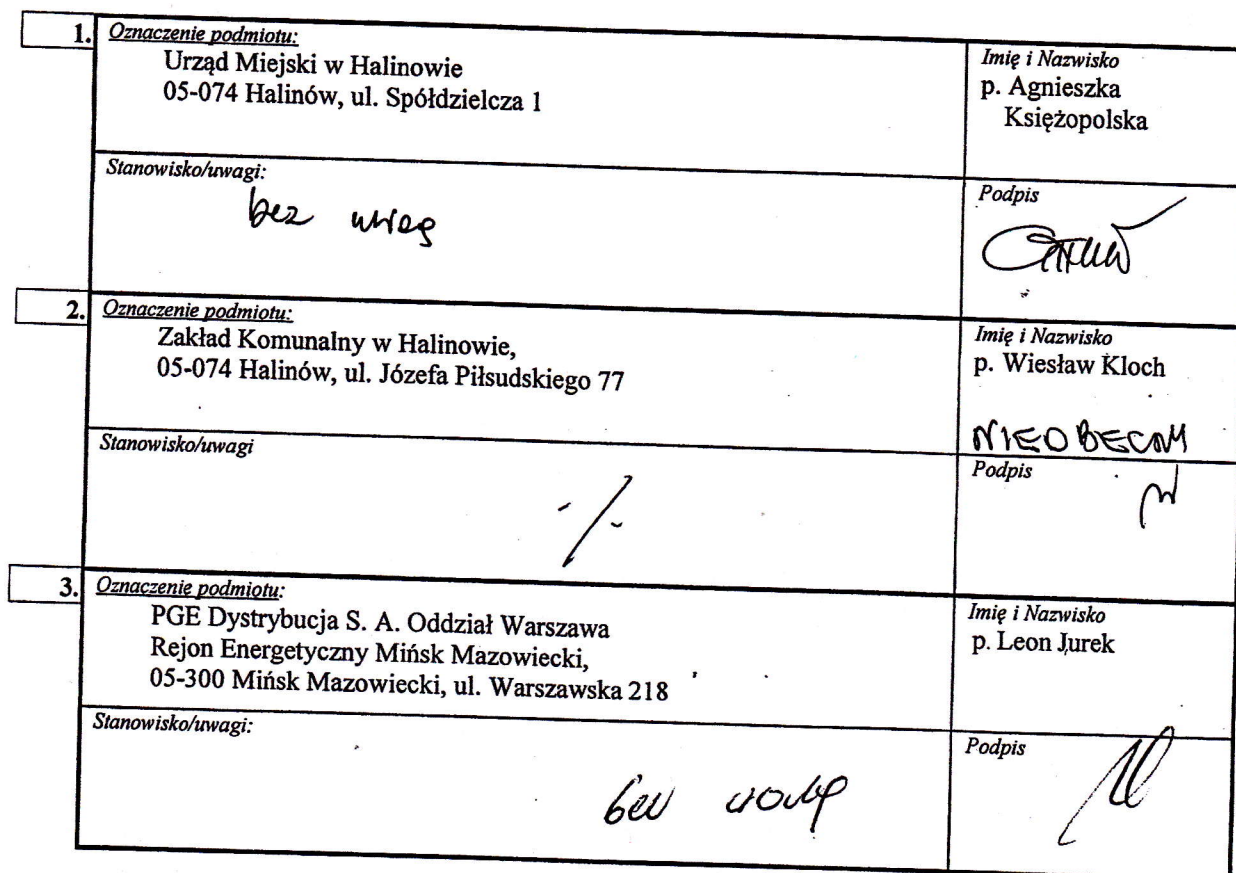 1.
Oznaczenie podmiotu:
Urząd Miejski w Halinowie
05-074 Halinów, ul. Spółdzielcza 1
Imię i Nazwisko
p. Agnieszka
Księżopolska
Stanowisko/uwagi:
bez uwag
Podpis
2.
Oznaczenie podmiotu:
Zakład Komunalny w Halinowie,
05-074 Halinów, ul. Józefa Piłsudskiego 77
Imię i Nazwisko
p. Wiesław Kloch
NIEOBECNY
Stanowisko/uwagi
-/-
Podpis
3.
Oznaczenie podmiotu:
PGE Dystrybucja S. A. Oddział Warszawa
Rejon Energetyczny Mińsk Mazowiecki,
05-300 Mińsk Mazowiecki, ul. Warszawska 218
Imię i Nazwisko
p. Leon Jurek
Stanowisko/uwagi:
bez uwag
Podpis